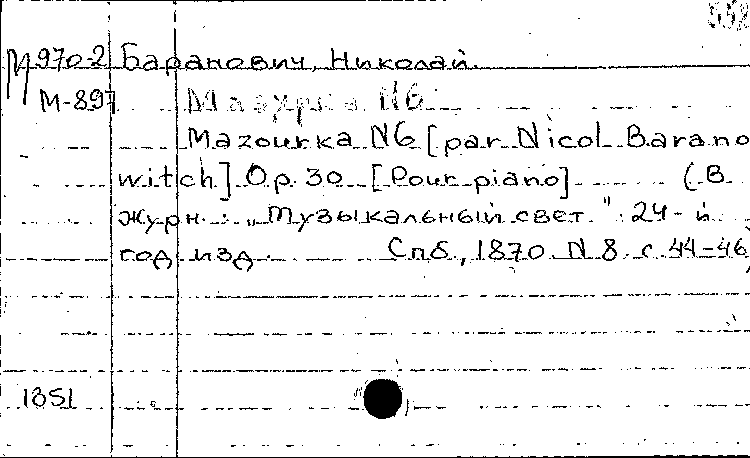 552
М970-2 Баранович, Николай.
М-897 Мазурка N6
Mazourka N6 [par Nicol Barano
witch] Op. 30 [Pour piano] (В
журн.: „Музыкальный свет." 24-й
год изд. Спб., 1870 N 8 с 44-46
1851